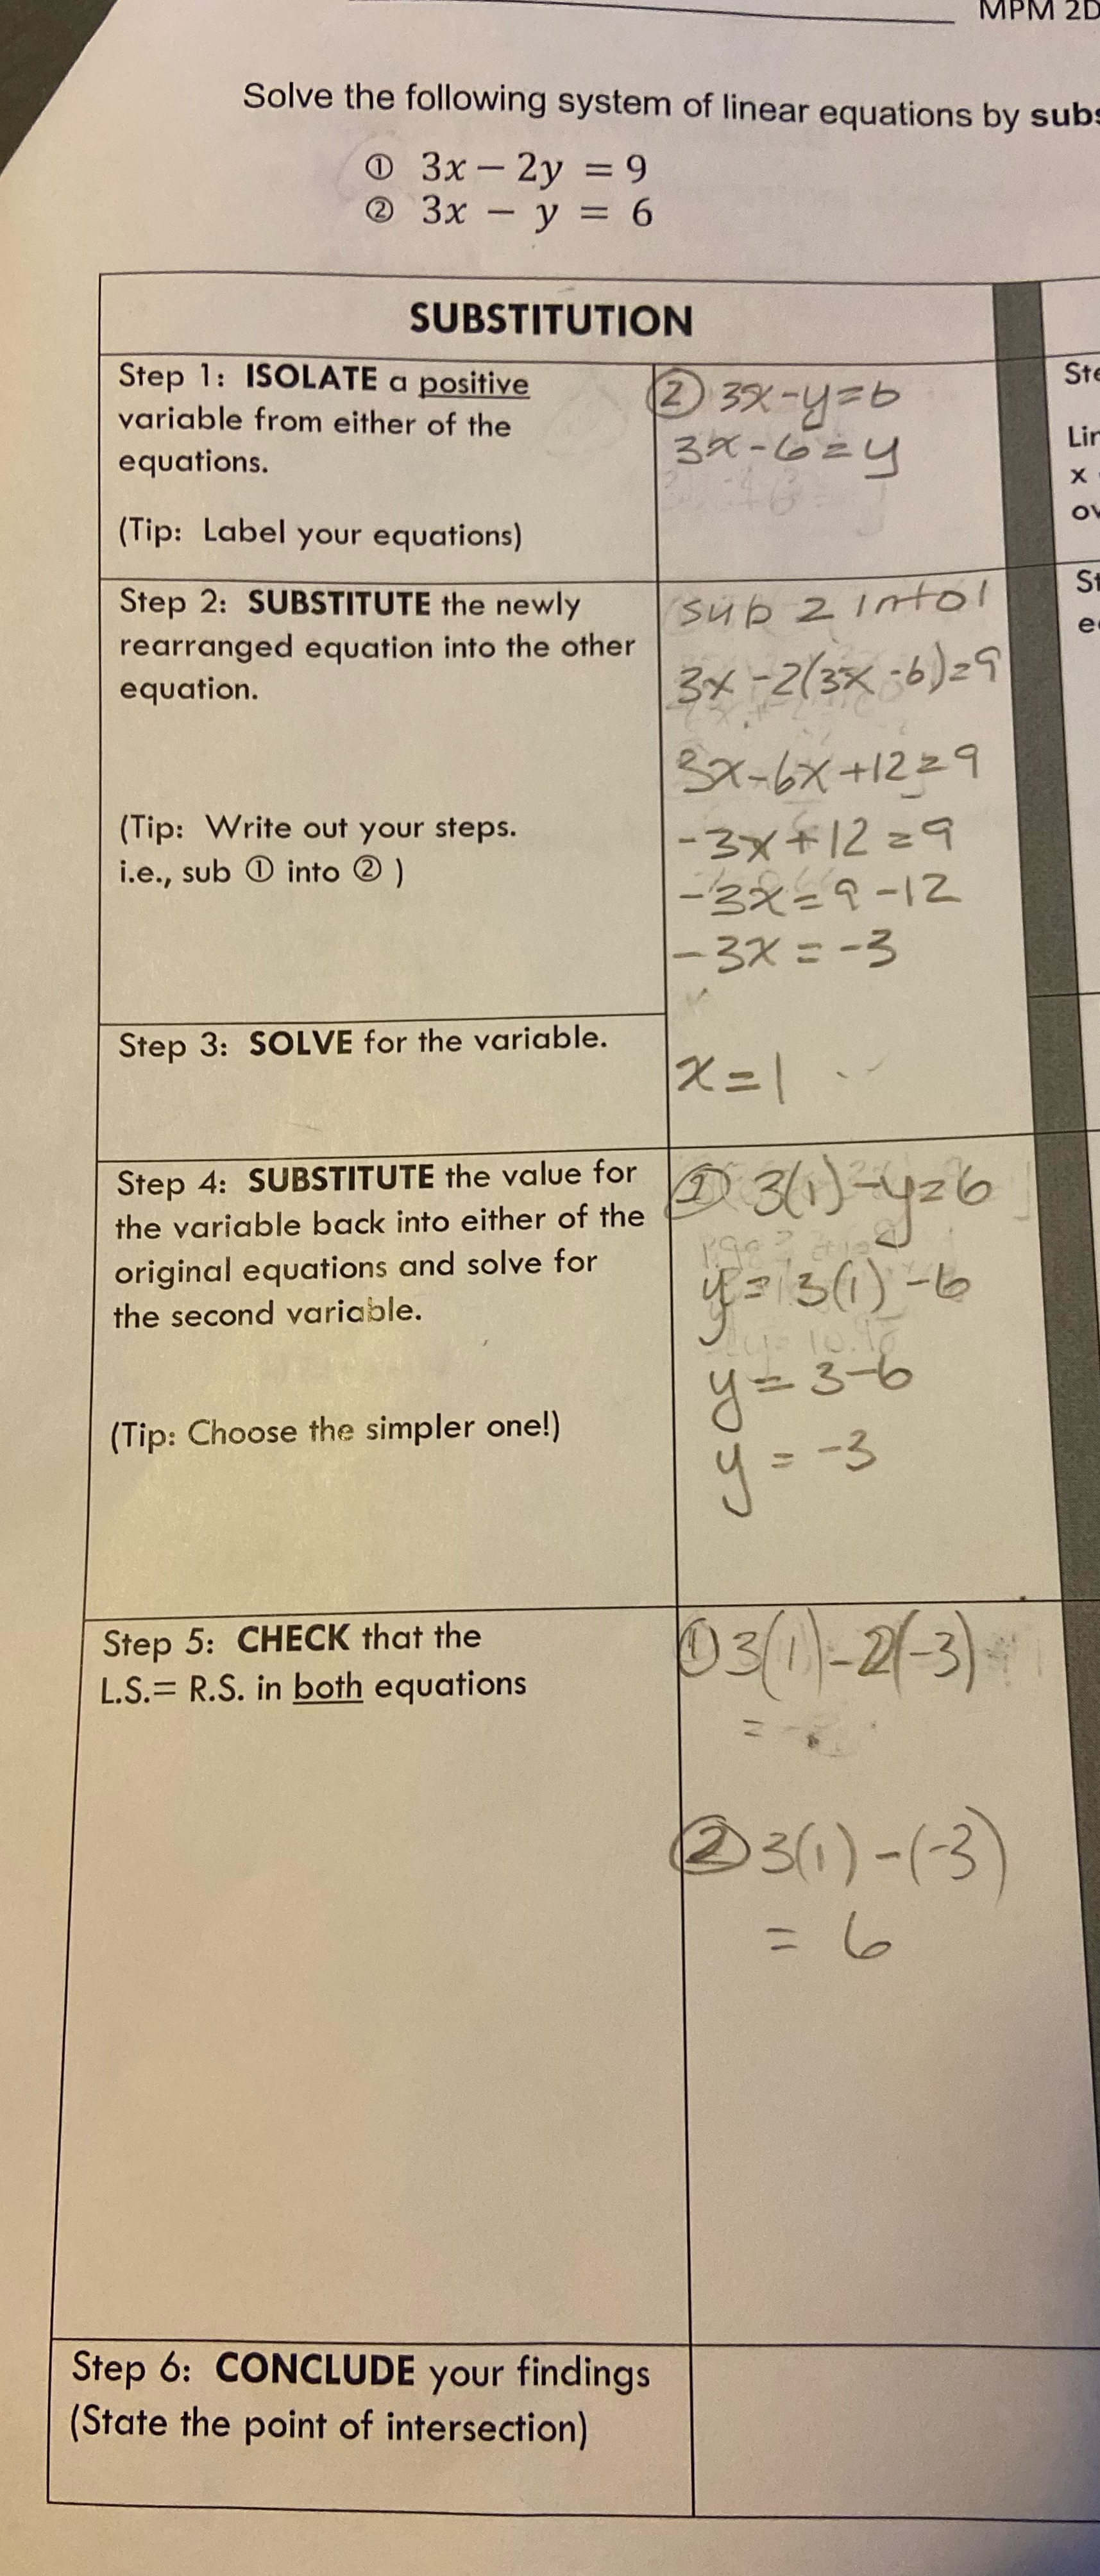 MPM 2D
Solve the following system of linear equations by subs
① 3x − 2y = 9
② 3x − y = 6
SUBSTITUTION
Step 1: ISOLATE a positive
variable from either of the
equations.
(Tip: Label your equations)
② 3x-y=6
3x-6=y
Step 2: SUBSTITUTE the newly
rearranged equation into the other
equation.
(Tip: Write out your steps.
i.e., sub ① into ② )
sub 2 into 1
3x-2(3x-6)=9
3x-6x+12=9
-3x+12=9
-3x=9-12
-3x=-3
Step 3: SOLVE for the variable.
x=1
Step 4: SUBSTITUTE the value for
the variable back into either of the
original equations and solve for
the second variable.
(Tip: Choose the simpler one!)
3(1)-y=6
y=3(1)-6
y=3-6
y=-3
Step 5: CHECK that the
L.S.= R.S. in both equations
① 3(1)-2(-3)
=
② 3(1)-(-3)
= 6
Step 6: CONCLUDE your findings
(State the point of intersection)
Ste
Lin
x
ov
St
e